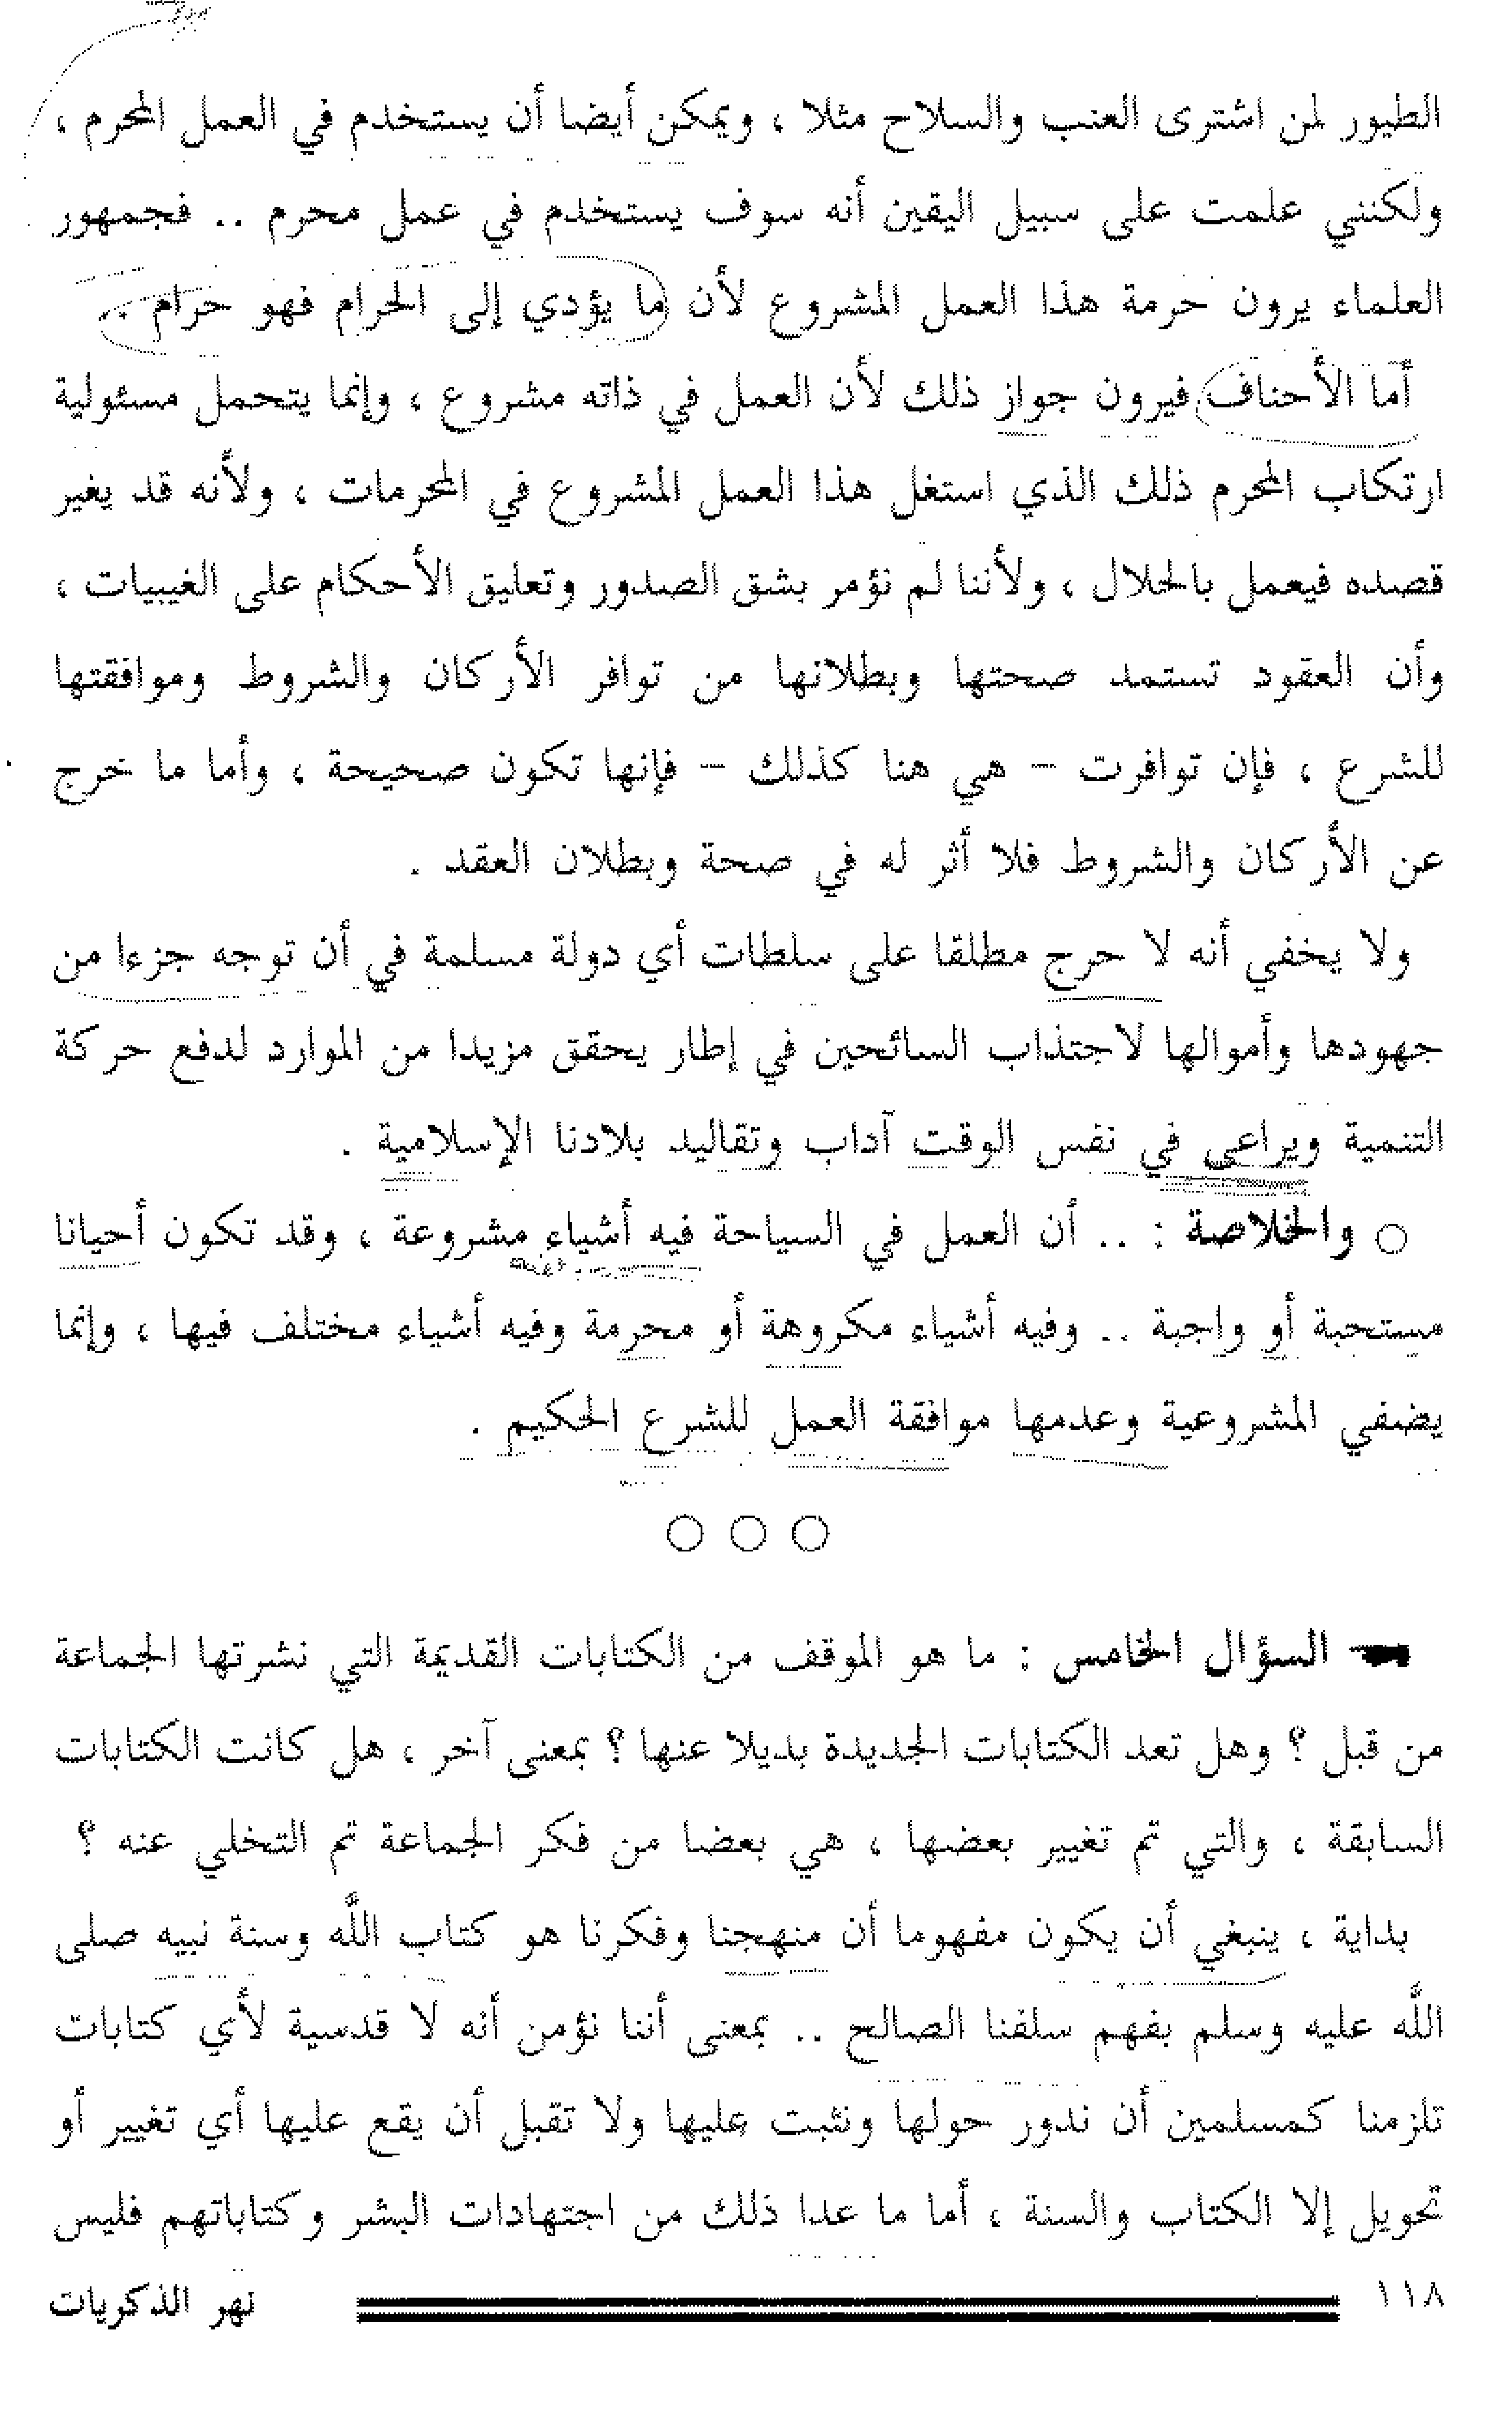 الطيور لمن اشترى العنب والسلاح مثلا ، ويمكن أيضا أن يستخدم في العمل المحرم ،
ولكنني علمت على سبيل اليقين أنه سوف يستخدم في عمل محرم .. فجمهور
العلماء يرون حرمة هذا العمل المشروع لأن ما يؤدي إلى الحرام فهو حرام ..
أما الأحناف فيرون جواز ذلك لأن العمل في ذاته مشروع ، وإنما يتحمل مسئولية
ارتكاب المحرم ذلك الذي استغل هذا العمل المشروع في المحرمات ، ولأنه قد يغير
قصده فيعمل بالحلال ، ولأننا لم نؤمر بشق الصدور وتعليق الأحكام على الغيبيات ،
وأن العقود تستمد صحتها وبطلانها من توافر الأركان والشروط وموافقتها
للشرع ، فإن توافرت – هي هنا كذلك – فإنها تكون صحيحة ، وأما ما خرج
عن الأركان والشروط فلا أثر له في صحة وبطلان العقد .
ولا يخفي أنه لا حرج مطلقا على سلطات أي دولة مسلمة في أن توجه جزءا من
جهودها وأموالها لاجتذاب السائحين في إطار يحقق مزيدا من الموارد لدفع حركة
التنمية ويراعي في نفس الوقت آداب وتقاليد بلادنا الإسلامية .
○ والخلاصة : .. أن العمل في السياحة فيه أشياء مشروعة ، وقد تكون أحيانا
مستحبة أو واجبة .. وفيه أشياء مكروهة أو محرمة وفيه أشياء مختلف فيها ، وإنما
يضفي المشروعية وعدمها موافقة العمل للشرع الحكيم .
○ ○ ○
السؤال الخامس : ما هو الموقف من الكتابات القديمة التي نشرتها الجماعة
من قبل ؟ وهل تعد الكتابات الجديدة بديلا عنها ؟ بمعنى آخر ، هل كانت الكتابات
السابقة ، والتي تم تغيير بعضها ، هي بعضا من فكر الجماعة تم التخلي عنه ؟
بداية ، ينبغي أن يكون مفهوما أن منهجنا وفكرنا هو كتاب الله وسنة نبيه صلى
الله عليه وسلم بفهم سلفنا الصالح .. بمعنى أننا نؤمن أنه لا قدسية لأي كتابات
تلزمنا كمسلمين أن ندور حولها ونثبت عليها ولا تقبل أن يقع عليها أي تغيير أو
تحويل إلا الكتاب والسنة ، أما ما عدا ذلك من اجتهادات البشر وكتاباتهم فليس
١١٨ نهر الذكريات